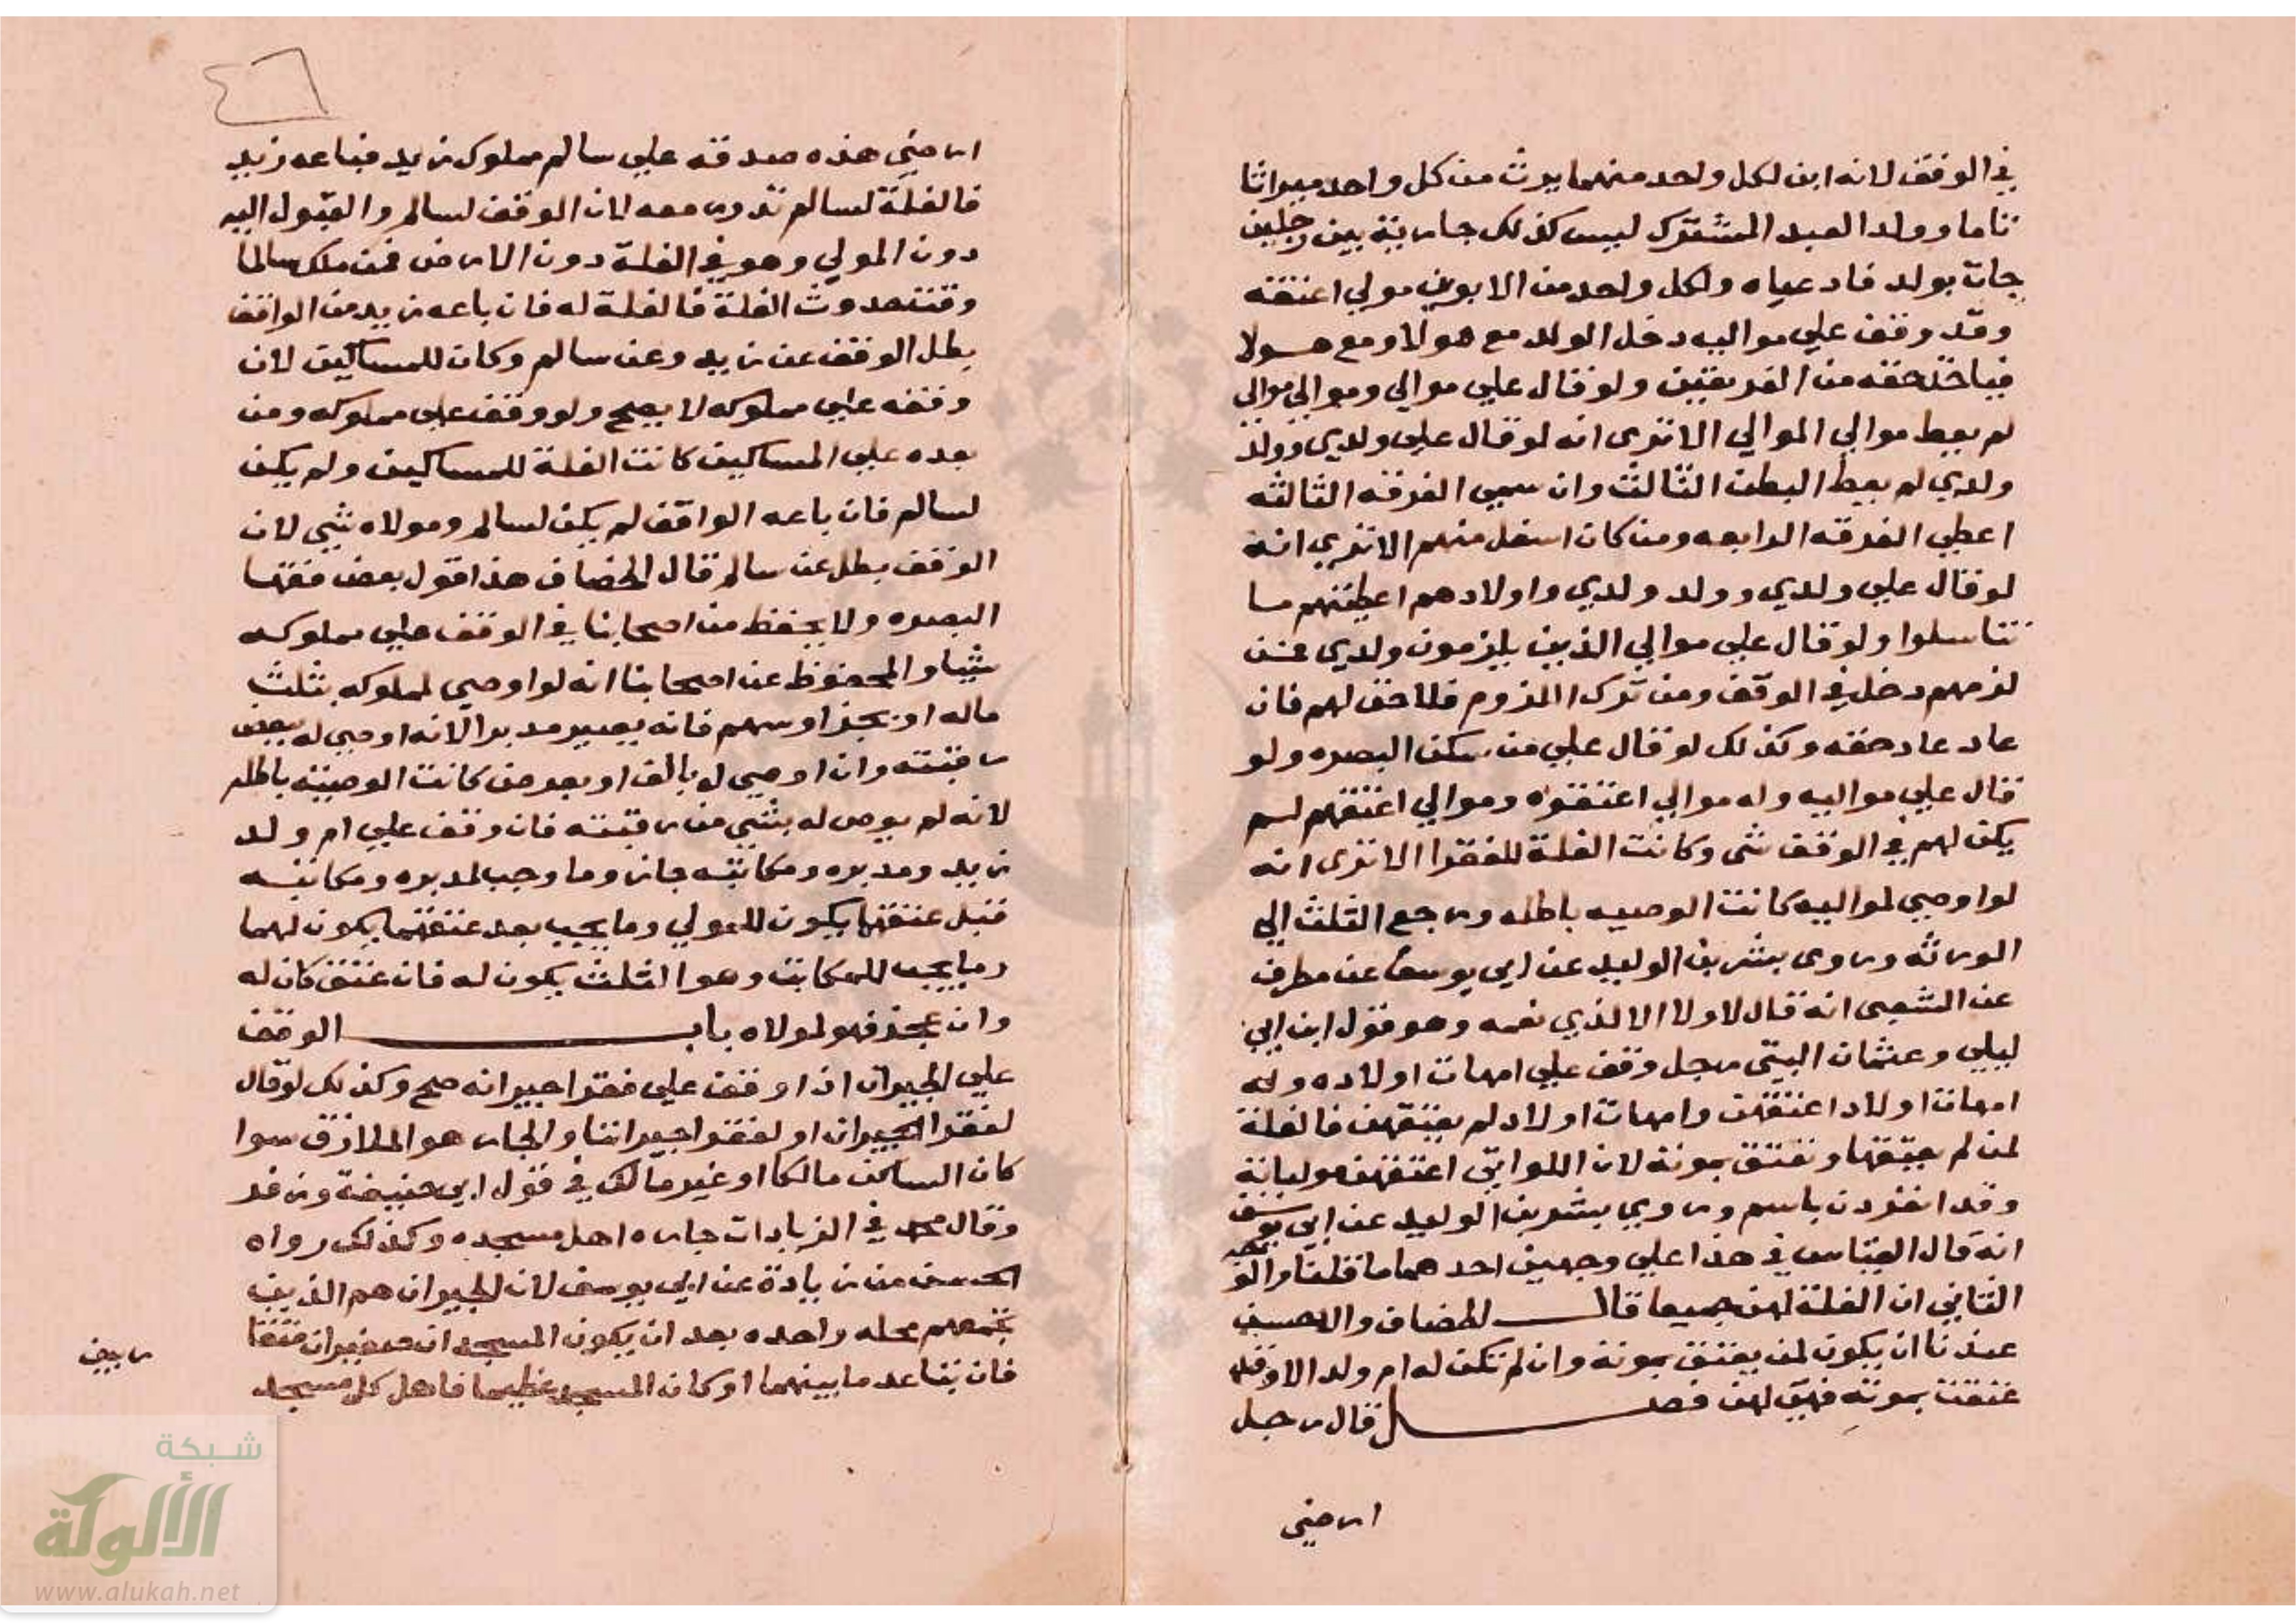 في الوقف لانه ابن لكل واحد منهما يرث من كل واحد ميراثا
تاما وولد العبد المشترك ليس كذلك جارية بين رجلين
جات بولد فادعياه ولكل واحد من الابوين موالي اعتقه
وقد وقف علي مواليه دخل الولد مع هولا ومع هولا
فياخذ حقه من الفريقين ولو قال علي موالي وموالي موالي
لم يعط موالي الموالي الا ترى انه لو قال علي ولدي وولد
ولدي لم يعط البطن الثالث وان سمي الفرقه الثالثه
اعطي الفرقه الرابعه ومن كان اسفل منهم الا تري انه
لو قال علي ولدي وولد ولدي واولادهم اعطيتهم ما
تناسلوا ولو قال علي موالي الذين يلزمون ولدي فمن
لزمهم دخل في الوقف ومن ترك اللزوم فلا حق لهم فان
عاد عاد حقه وكذلك لو قال علي من سكن البصره ولو
قال علي مواليه وله موالي اعتقوه وموالي اعتقهم لم
يكن لهم في الوقف شى وكانت الغلة للفقرا الا ترى انه
لو اوصي لمواليه كانت الوصيه باطله ورجع الثلث الي
الورثه وروى بشر بن الوليد عن ابي يوسف عن مطرف
عن الشعبى انه قال لا ولا الا لذي نعمه وهو قول ابن ابي
ليلي وعثمان البتى رجل وقف علي امهات اولاده وله
امهات اولاد اعتقهن وامهات اولاد لم يعتقهن فالغلة
لمن لم يعتقها وتعتق بموته لان اللواتي اعتقهن مولياته
وقد انفردن باسم وروي بشر بن الوليد عن ابي يوسف
انه قال القياس في هذا علي وجهين احدهما ما قلنا والوجه
الثاني ان الغلة لهن جميعا قال الخصاف والاحسن
عندنا ان يكون لمن يعتق بموته وان لم تكن له ام ولد الا وقد
عتقت بموته فهي لهن فصل قال رجل
ارضي
ارضي هذه صدقه علي سالم مملوك زيد فباعه زيد
فالغلة لسالم تدور معه لان الوقف لسالم والقبول اليه
دون المولي وهو في الغلة دون الارض فمن ملك سالما
وقت حدوث الغلة فالغلة له فان باعه زيد من الواقف
بطل الوقف عن زيد وعن سالم وكان للمساكين لان
وقفه علي مملوكه لا يصح ولو وقف علي مملوكه ومن
بعده علي المساكين كانت الغلة للمساكين ولم يكن
لسالم فان باعه الواقف لم يكن لسالم ومولاه شي لان
الوقف بطل عن سالم قال الخصاف هذا قول بعض فقها
البصره ولا يحفظ من اصحابنا في الوقف علي مملوكه
شيا والمحفوظ عن اصحابنا انه لو اوصي لمملوكه بثلث
ماله او بجز او سهم فانه يصير مدبرا لانه اوصي له ببعض
رقبته وان اوصي له بالف او بعرض كانت الوصية باطله
لانه لم يوص له بشي من رقبته فان وقف علي ام ولد
زيد ومدبره ومكاتبه جاز وما وجب لمدبره ومكاتبه
قبل عتقها يكون للمولي وما يجب بعد عتقهما يكون لهما
وما يجب للمكاتب وهو الثلث يكون له فان عتق كان له
وان عجز فهو لمولاه باب الوقف
علي الجيران اذا وقف علي فقرا جيرانه صح وكذلك لو قال
لفقرا الجيران او لفقرا جيراننا والجار هو الملازق سوا
كان الساكن مالكا او غير مالك في قول ابي حنيفة وزفر
وقال محمد في الزيادات جاره اهل مسجده وكذلك رواه
الحسن بن زيادة عن ابي يوسف لان الجيران هم الذين
تجمعهم محله واحده بعد ان يكون المسجدان صغيران متقا
ربين
فان تباعد ما بينهما او كان المسجد عظيما فاهل كل مسجد
شبكة
الألوكة
www.alukah.net